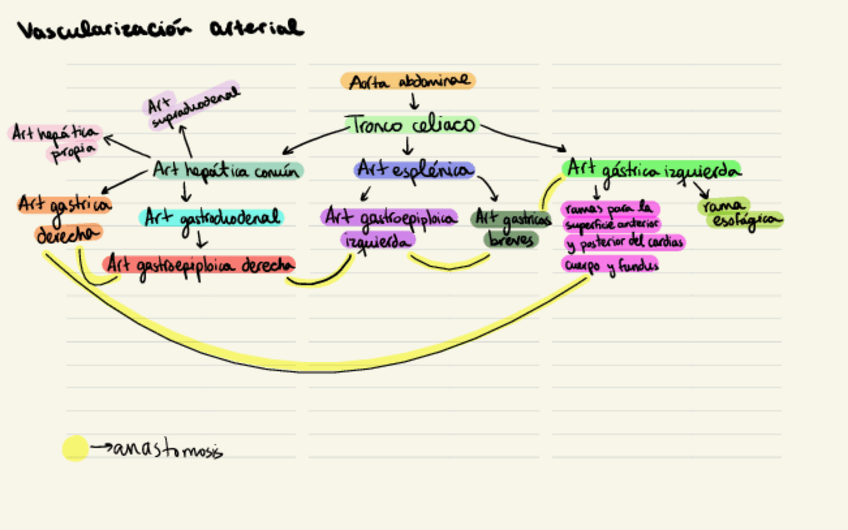 Vascularización arterial
Aorta abdominal
Tronco celiaco
Art
supraduodenal
Art hepática
propia
Art hepática común
Art esplénica
Art gástrica izquierda
Art gastrica
derecha
Art gastroduodenal
Art gastroepiploica
izquierda
Art gastricas
breves
ramas para la
superficie anterior
y posterior del cardias
cuerpo y fundus
rama
esofágica
Art gastroepiploica derecha
→ anastomosis